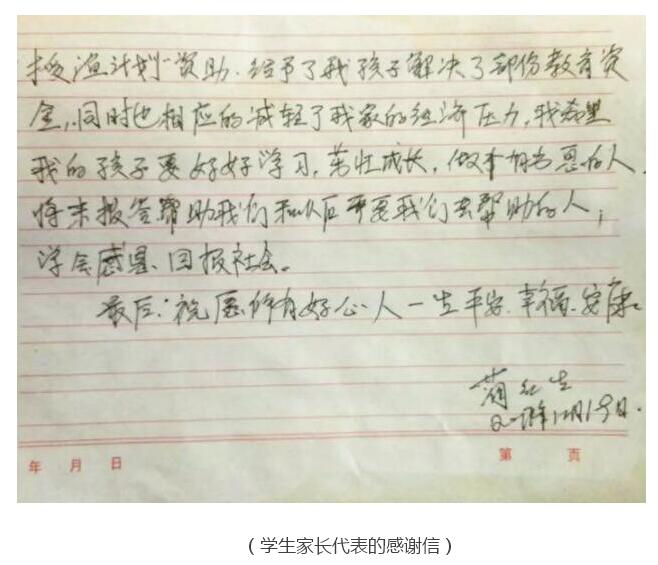 授渔计划"资助.给予了我孩子解决了部份教育资
金,同时也相应的减轻了我家的经济压力,我希望
我的孩子要好好学习,茁壮成长,做个有出息的人.
将来报答帮助我们和以后需要我们去帮助的人;
学会感恩、回报社会。
最后:祝愿所有好心人一生平安.幸福.安康.
红生
年12月19日.
年 月 日
第 页
(学生家长代表的感谢信)